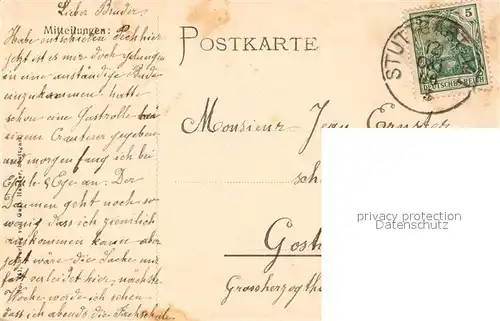 Lieber Bruder
Mitteilungen:
Habe entschieden Pech hier
jetzt ist es mir doch gelungen
in eine anständige Bude
einzukommen hatte
schon eine Gastrolle bei
einem gegeben
und morgen fang ich bei
an. Der
Daumen geht noch so
wenig dass ich ziemlich
auskommen kann aber
jetzt wäre die Sache mir
fast verleidet hier, nächste
Woche werde ich sehen
dass ich abends die Fachschule
POSTKARTE
5
DEUTSCHES REICH
STUTTGART
Monsieur Jean
Grossherzogth
privacy protection
Datenschutz